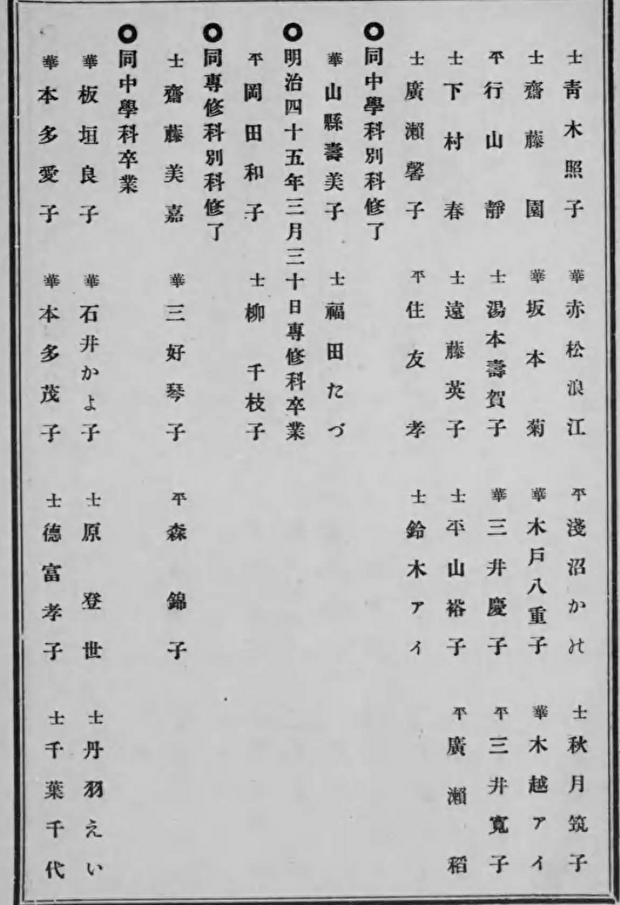 士 青木照子 華 赤松浪江 平 淺沼かね 士 秋月筑子
士 齋藤園 華 坂本菊 華 木戸八重子 華 木越アイ
平 行山靜 士 湯本壽賀子 華 三井慶子 平 三井寛子
士 下村春 士 遠藤英子 士 平山裕子 平 廣瀨稻
士 廣瀨馨子 平 住友孝 士 鈴木アイ
○同中學科別科修了
華 山縣壽美子 士 福田たづ
○明治四十五年三月三十日專修科卒業
平 岡田和子 士 柳千枝子
○同專修科別科修了
士 齋藤美嘉 華 三好琴子 平 森錦子
○同中學科卒業
華 板垣良子 華 石井かよ子 士 原登世 士 丹羽えい
華 本多愛子 華 本多茂子 士 德富孝子 士 千葉千代